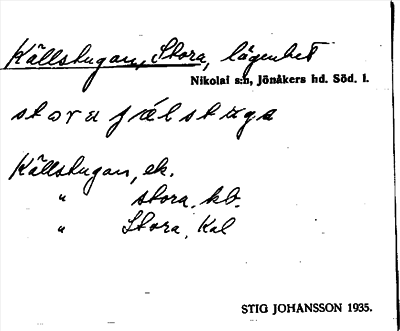 Källstugan, Stora, lägenhet
Nikolai s:n, Jönåkers hd. Söd. l.
stora ɟälstuga
Källstugan, ek.
" stora, kb.
" Stora, Kal
STIG JOHANSSON 1935.